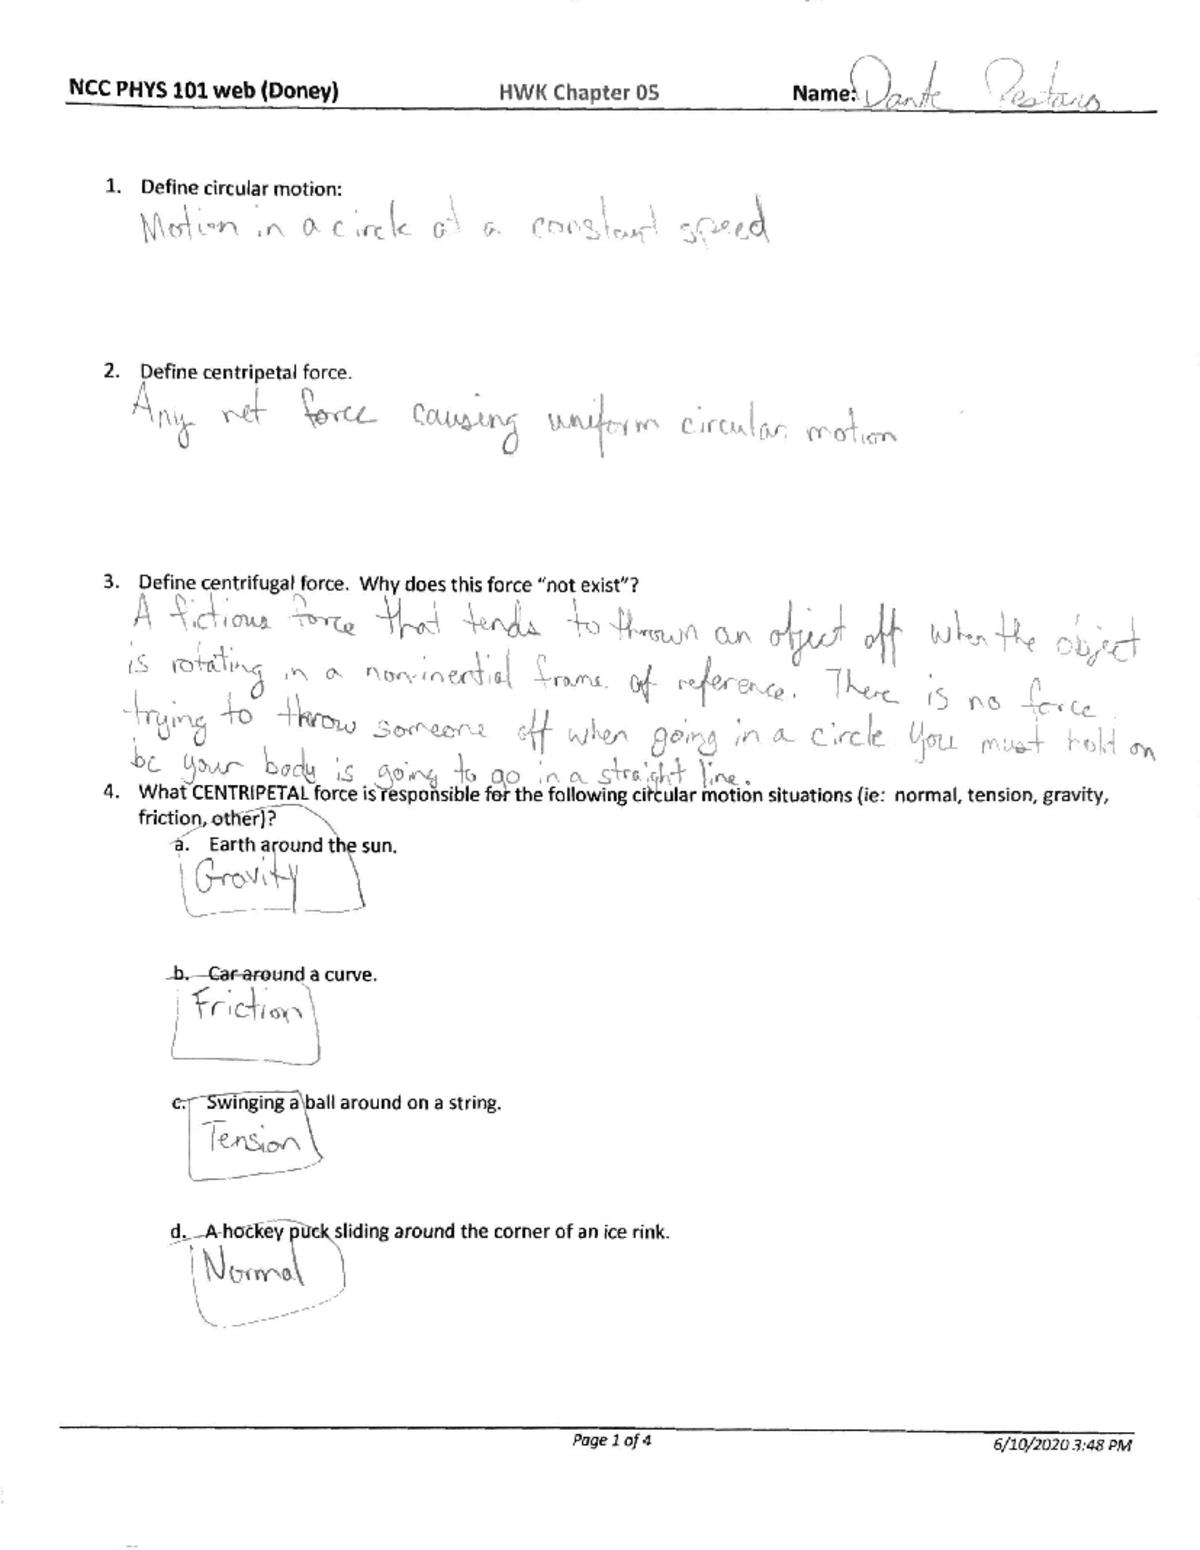 NCC PHYS 101 web (Doney) HWK Chapter 05 Name: Dante Pestana
1. Define circular motion:
Motion in a circle at a constant speed
2. Define centripetal force.
Any net force causing uniform circular motion
3. Define centrifugal force. Why does this force “not exist”?
A fictious force that tends to thrown an object off when the object
is rotating in a non-inertial frame of reference. There is no force
trying to throw someone off when going in a circle you must hold on
bc your body is going to go in a straight line.
4. What CENTRIPETAL force is responsible for the following circular motion situations (ie: normal, tension, gravity,
friction, other)?
a. Earth around the sun.
Gravity
b. Car around a curve.
Friction
c. Swinging a ball around on a string.
Tension
d. A hockey puck sliding around the corner of an ice rink.
Normal
Page 1 of 4
6/10/2020 3:48 PM